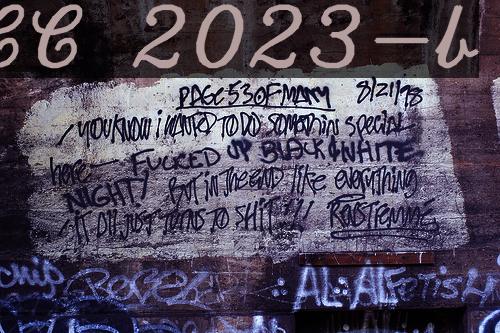 CC 2023-b
PAGE 53 OF MANY 8/21/98
YOU KNOW i WANTED TO DO SOMETHIN SPECIAL
here — FUCKED UP BLACK & WHITE
NIGHT! BUT iN The END liKE everything
IT All JUST TURNS TO SHIT!!!
chip
AL: ALFETiSH